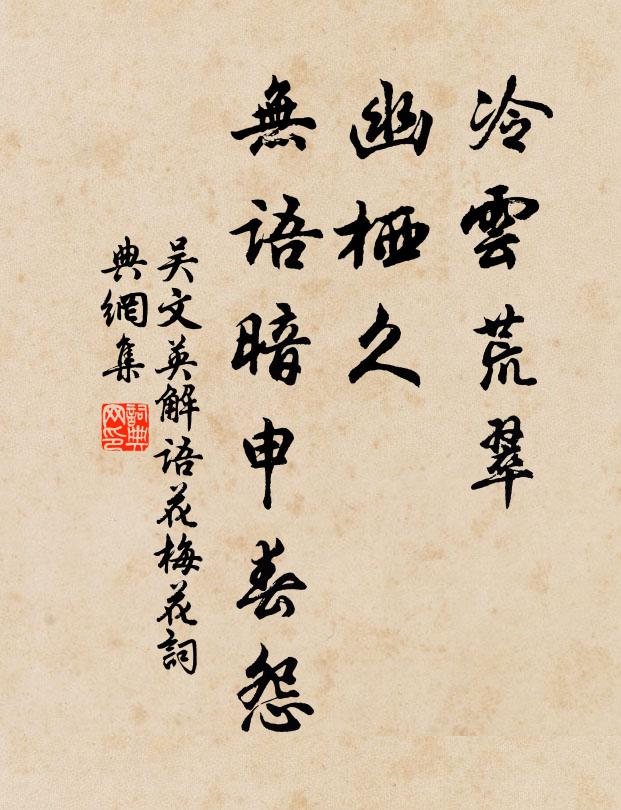 冷雲荒翠
幽栖久
無語暗申春怨
吴文英解语花梅花詞
典網集
詞典
网印